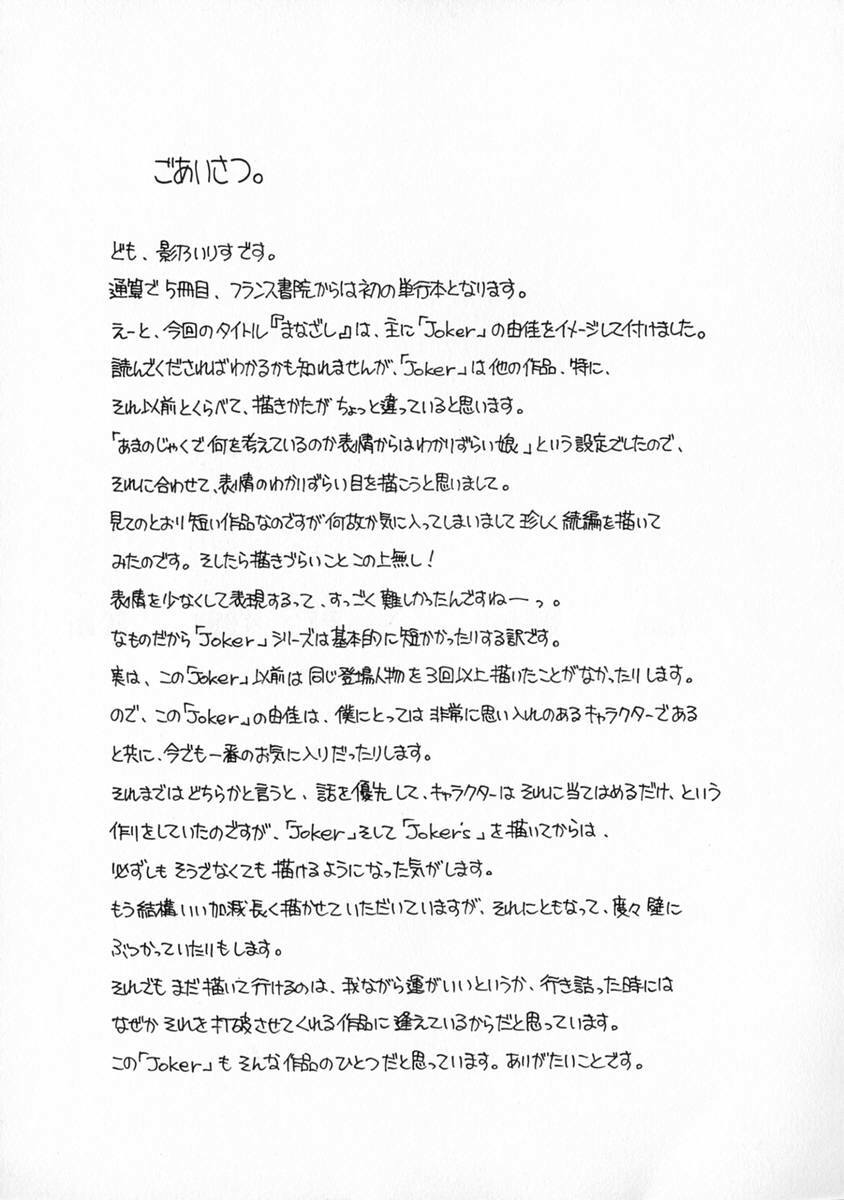 ごあいさつ。
ども、影乃いりすです。
通算で5冊目、フランス書院からは初の単行本となります。
えーと、今回のタイトル『まなざし』は、主に「Joker」の由佳をイメージして付けました。
読んでくださればわかるかも知れませんが、「Joker」は他の作品、特に、
それ以前とくらべて、描きかたがちょっと違っていると思います。
「あまのじゃくで何を考えているのか表情からはわかりずらい娘」という設定でしたので、
それに合わせて、表情のわかりずらい目を描こうと思いまして。
見てのとおり短い作品なのですが何故か気に入ってしまいまして珍しく続編を描いて
みたのです。そしたら描きづらいことこの上無し!
表情を少なくして表現するって、すっごく難しかったんですねーっ。
なものだから「Joker」シリーズは基本的に短かかったりする訳です。
実は、この「Joker」以前は同じ登場人物を3回以上描いたことがなかったりします。
ので、この「Joker」の由佳は、僕にとっては非常に思い入れのあるキャラクターである
と共に、今でも一番のお気に入りだったりします。
それまではどちらかと言うと、話を優先して、キャラクターはそれに当てはめるだけ、という
作りをしていたのですが、「Joker」そして「Joker's」を描いてからは、
必ずしもそうでなくても描けるようになった気がします。
もう結構いい加減長く描かせていただいていますが、それにともなって、度々壁に
ぶつかっていたりもします。
それでもまだ描いて行けるのは、我ながら運がいいというか、行き詰った時には
なぜかそれを打破させてくれる作品に逢えているからだと思っています。
この「Joker」もそんな作品のひとつだと思っています。ありがたいことです。